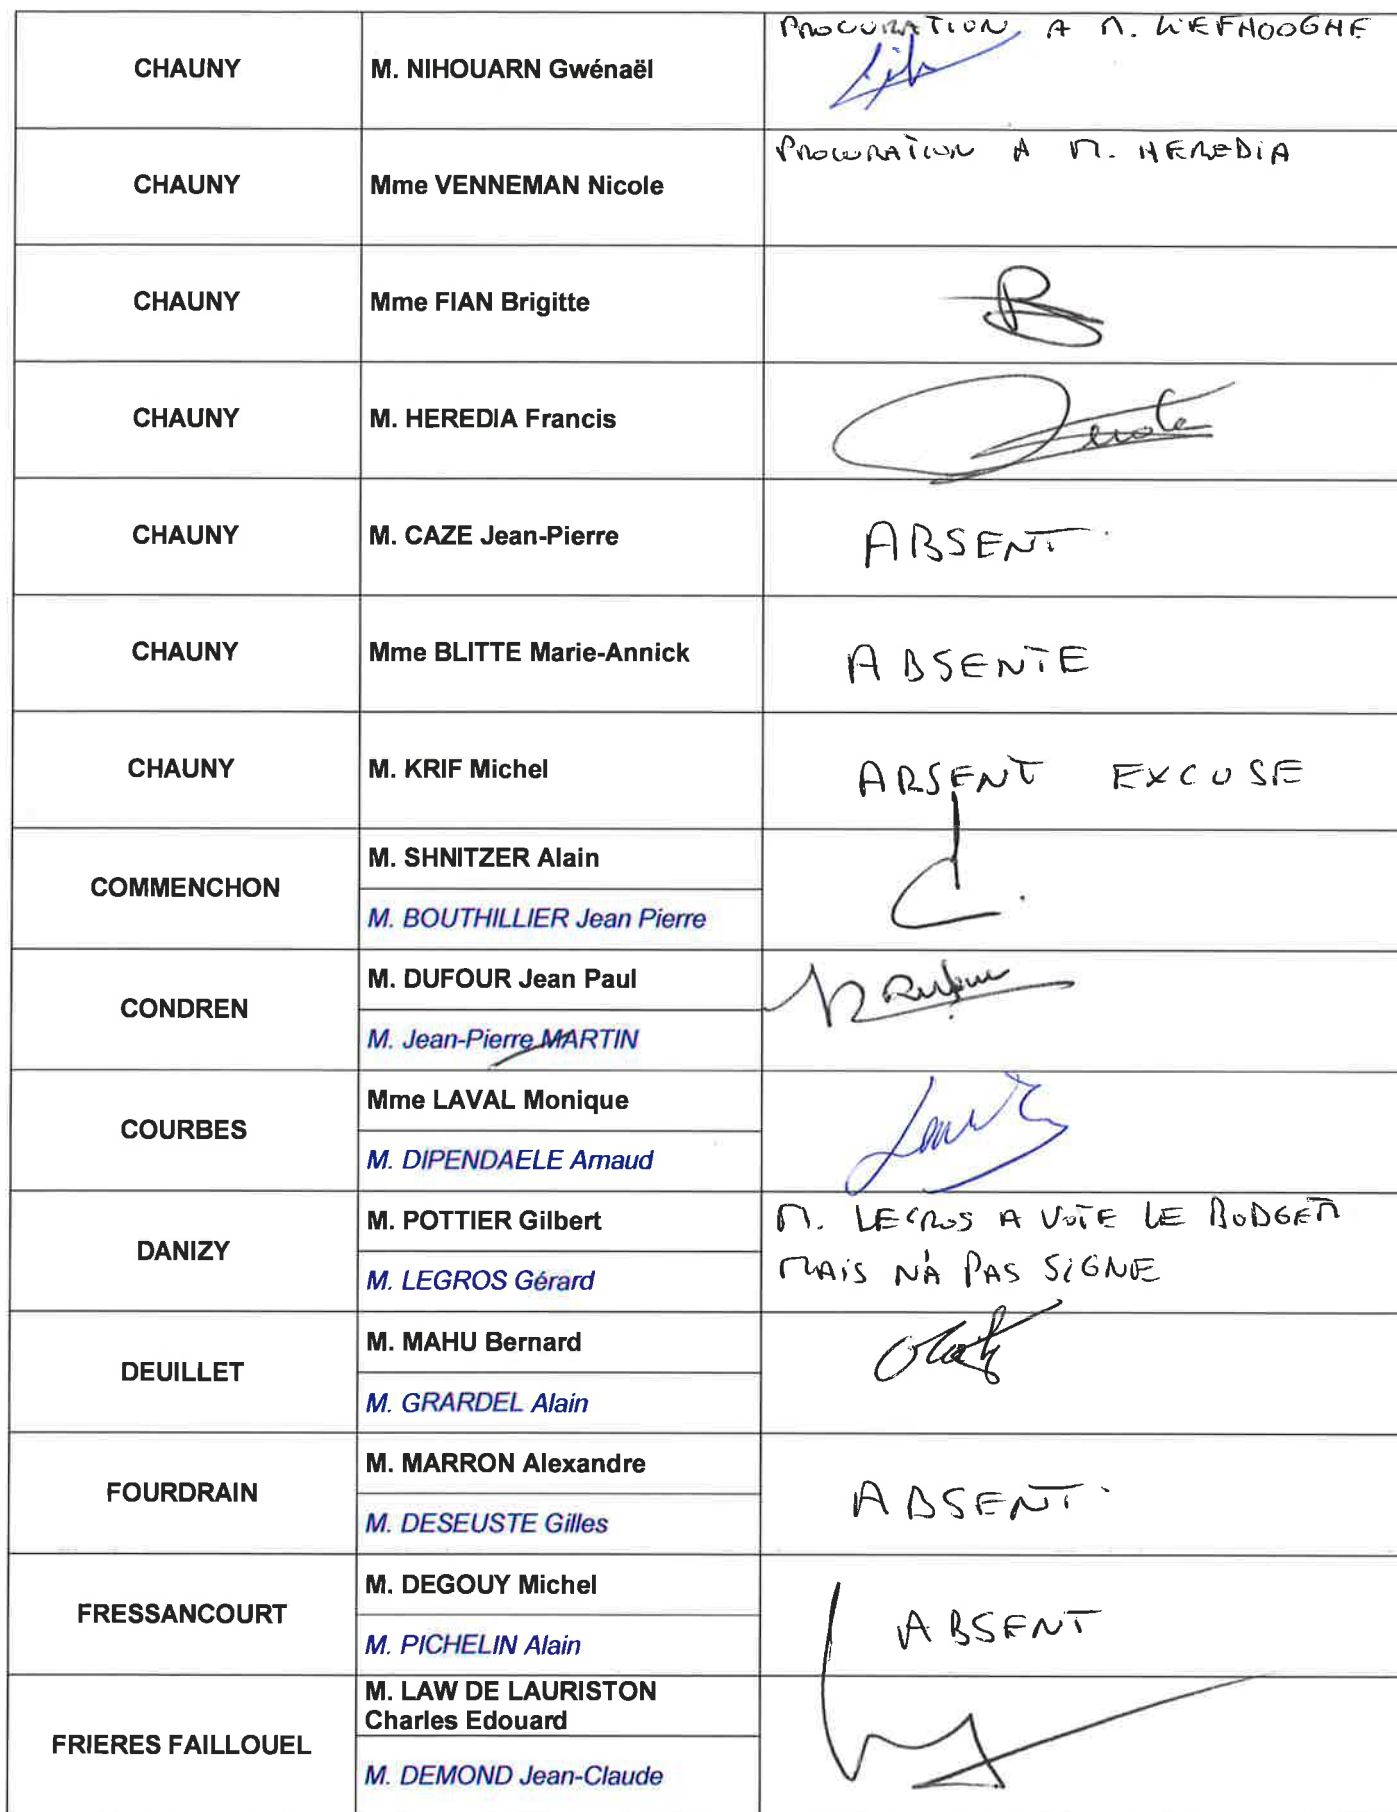 CHAUNY M. NIHOUARN Gwénaël PROCURATION A M. LIEFHOOGHE
CHAUNY Mme VENNEMAN Nicole PROCURATION A M. HEREDIA
CHAUNY Mme FIAN Brigitte
CHAUNY M. HEREDIA Francis
CHAUNY M. CAZE Jean-Pierre ABSENT
CHAUNY Mme BLITTE Marie-Annick ABSENTE
CHAUNY M. KRIF Michel ABSENT EXCUSE
COMMENCHON
M. SHNITZER Alain
M. BOUTHILLIER Jean Pierre
CONDREN
M. DUFOUR Jean Paul
M. Jean-Pierre MARTIN
COURBES
Mme LAVAL Monique
M. DIPENDAELE Arnaud
DANIZY
M. POTTIER Gilbert
M. LEGROS Gérard
M. LEGROS A VOTE LE BUDGET
MAIS N'A PAS SIGNE
DEUILLET
M. MAHU Bernard
M. GRARDEL Alain
FOURDRAIN
M. MARRON Alexandre
M. DESEUSTE Gilles
ABSENT
FRESSANCOURT
M. DEGOUY Michel
M. PICHELIN Alain
ABSENT
FRIERES FAILLOUEL
M. LAW DE LAURISTON
Charles Edouard
M. DEMOND Jean-Claude